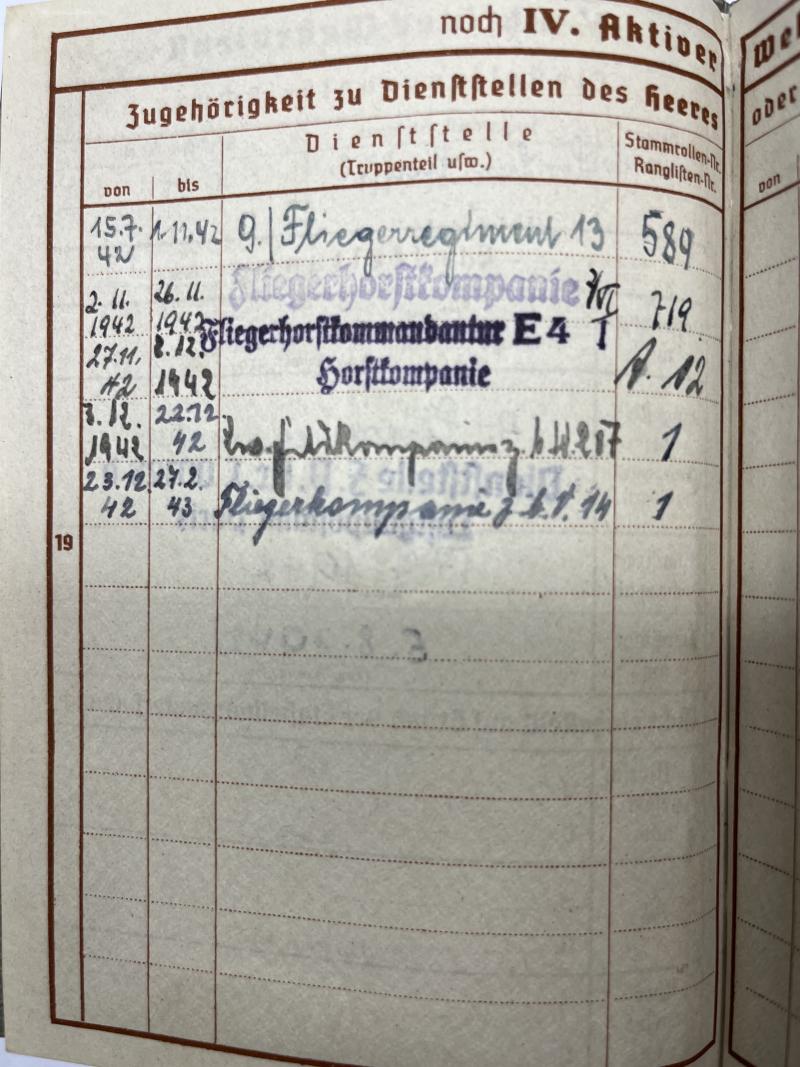 noch IV. Aktiver
Zugehörigkeit zu Dienststellen des Heeres
von
bis
Dienststelle
(Truppenteil usw.)
Stammrollen-Nr.
Ranglisten-Nr.
15.7. 42 1.11.42 9./Fliegerregiment 13 589
2.11. 1942 26.11. 1942 Fliegerhorstkompanie 719
27.11. 42 2.12. 1942 Fliegerhorstkommandantur E 4 I
Horstkompanie A. 12
3.12. 1942 22.12. 42 1
23.12. 42 27.2. 43 Fliegerkompanie z.b.V. 14 1
19
oder
von